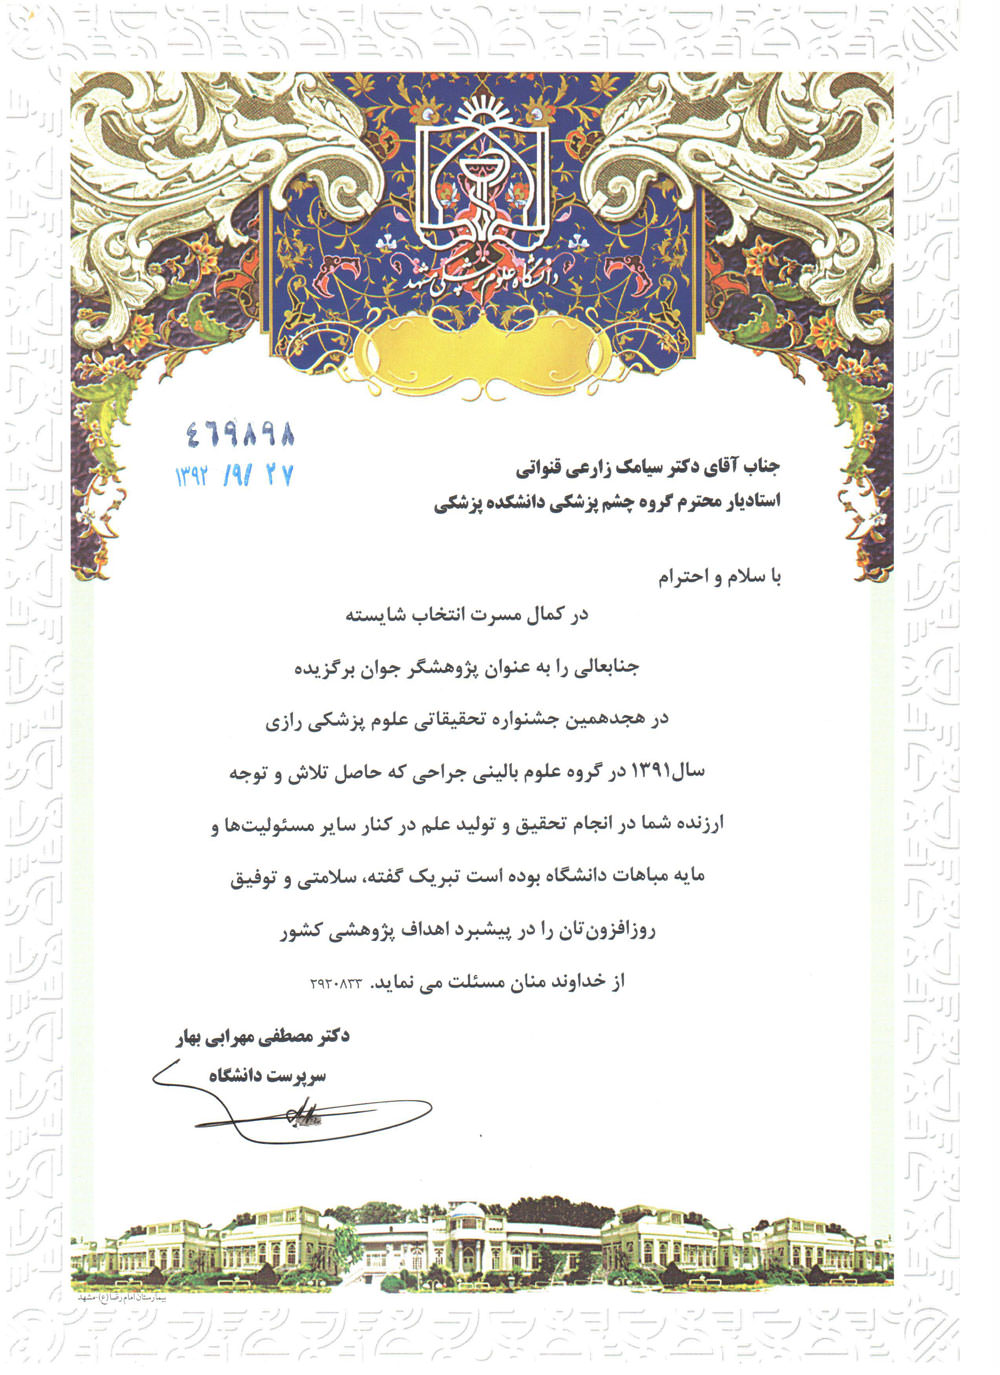 دانشگاه علوم پزشکی مشهد
٤٦٩٨٩٨
۱۳۹۲ /۹/ ۲۷
جناب آقای دکتر سیامک زارعی قنواتی
استادیار محترم گروه چشم پزشکی دانشکده پزشکی
با سلام و احترام
در کمال مسرت انتخاب شایسته
جنابعالی را به عنوان پژوهشگر جوان برگزیده
در هجدهمین جشنواره تحقیقاتی علوم پزشکی رازی
سال۱۳۹۱ در گروه علوم بالینی جراحی که حاصل تلاش و توجه
ارزنده شما در انجام تحقیق و تولید علم در کنار سایر مسئولیت‌ها و
مایه مباهات دانشگاه بوده است تبریک گفته، سلامتی و توفیق
روزافزون‌تان را در پیشبرد اهداف پژوهشی کشور
از خداوند منان مسئلت می نماید. ۲۹۲۰۸۳۳
دکتر مصطفی مهرابی بهار
سرپرست دانشگاه
بیمارستان امام رضا (ع)-مشهد